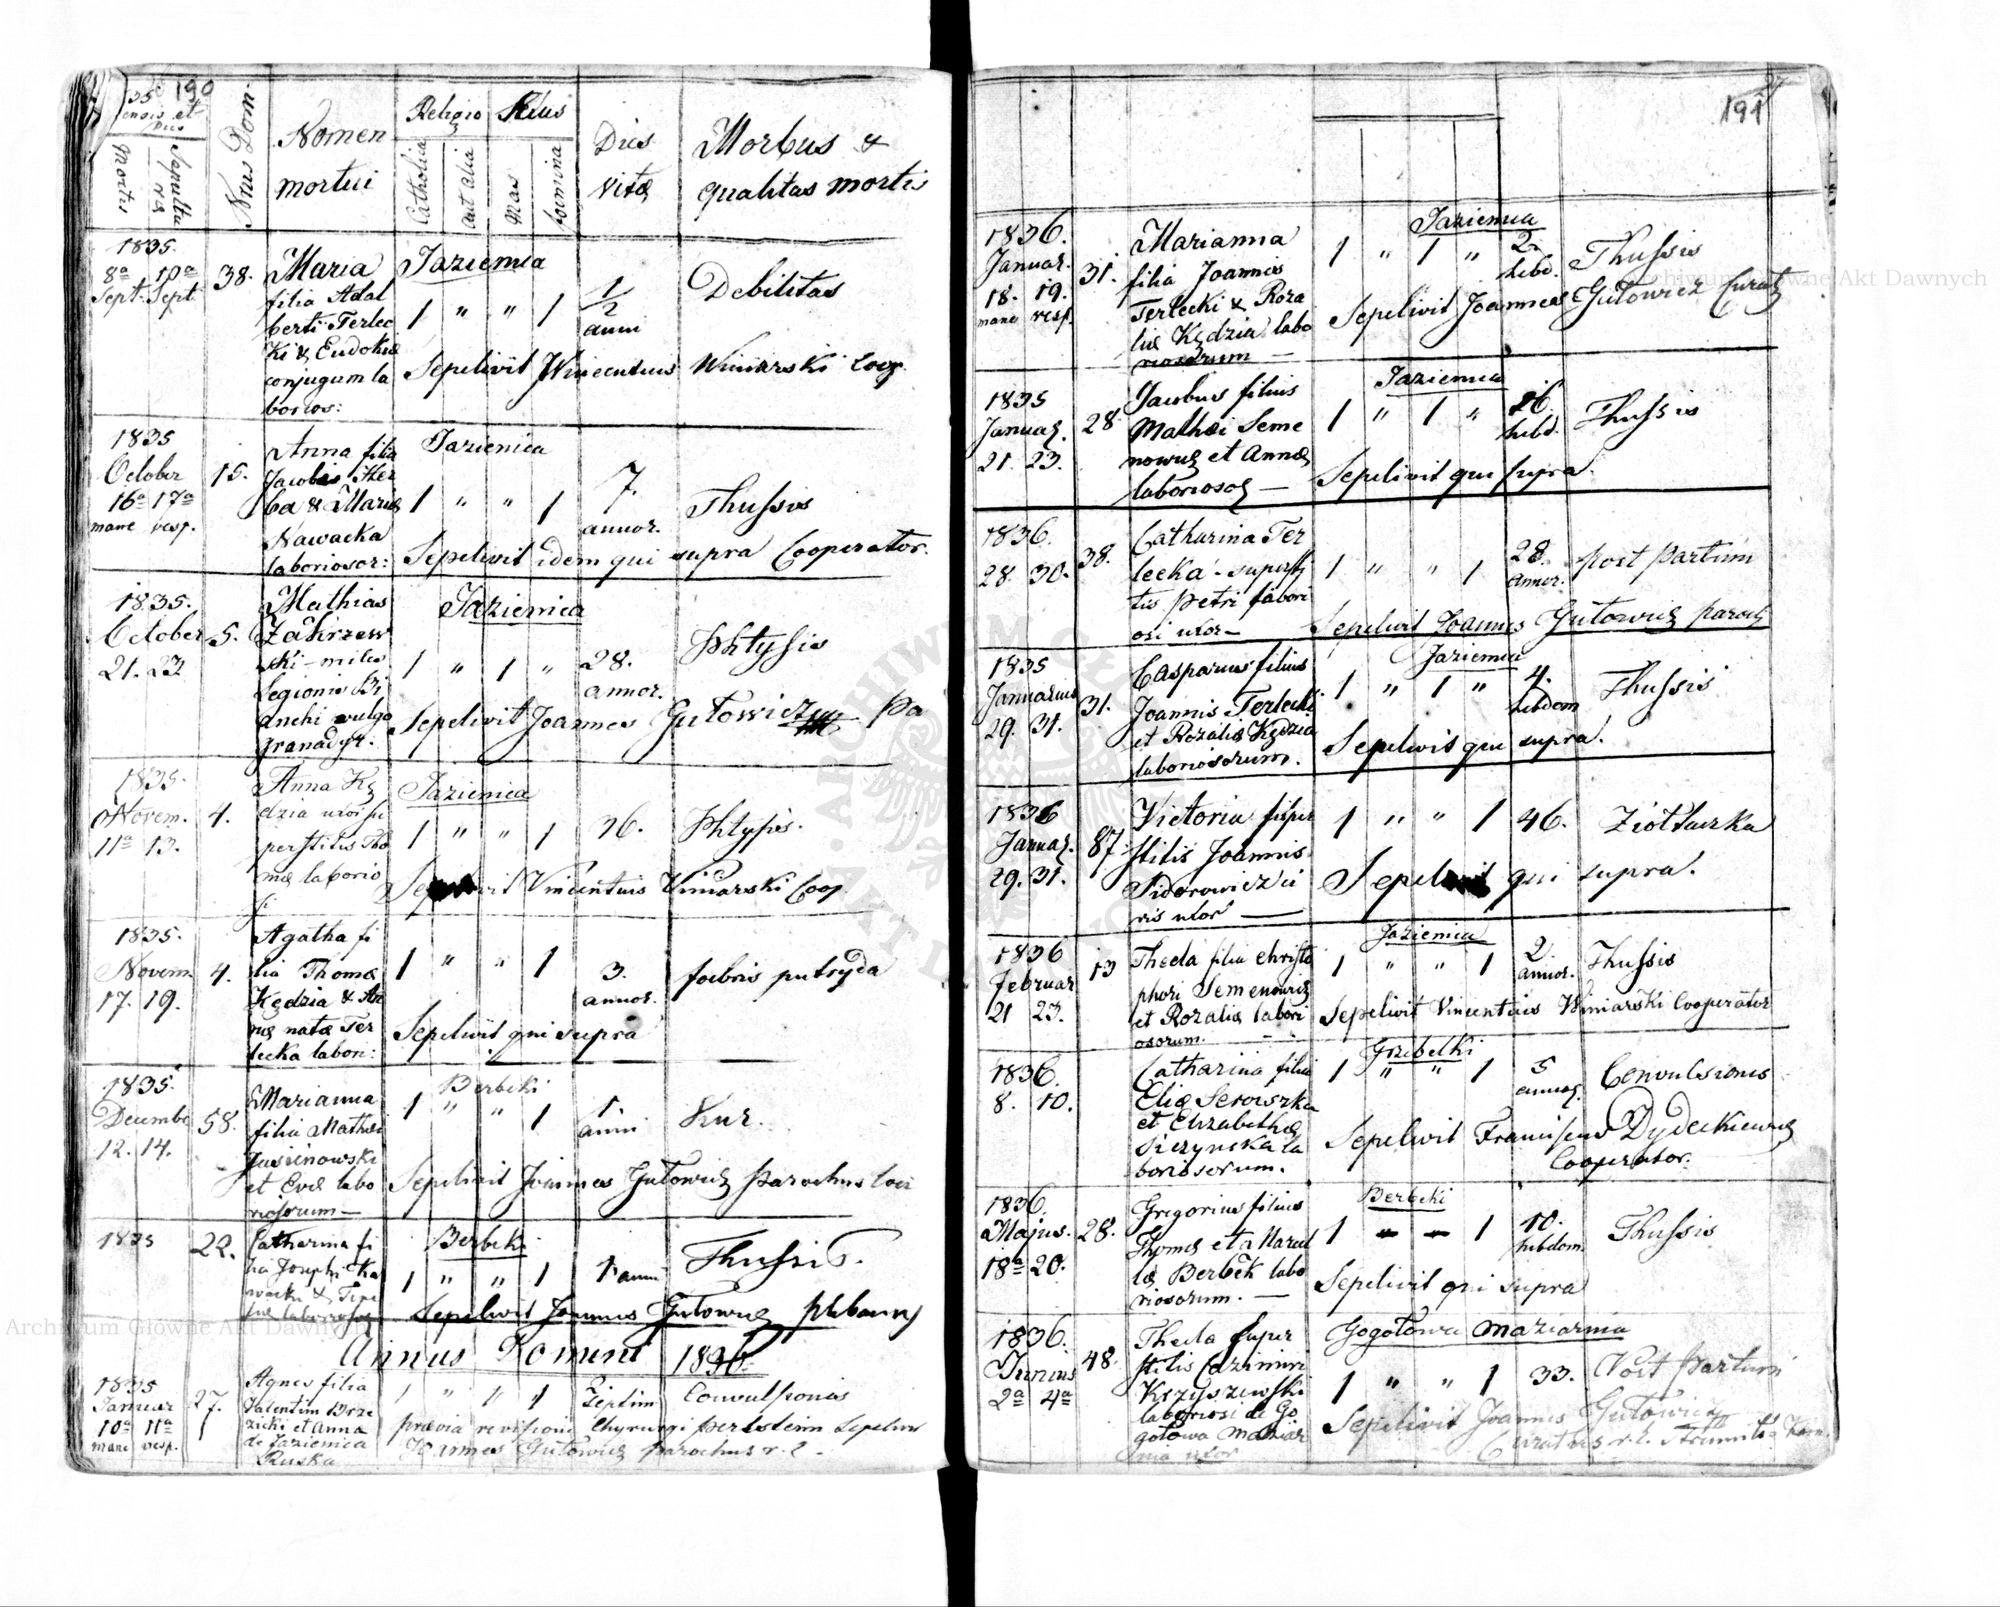 190
Mortis
Sepultu
ra
Nrus Dom.
Nomen
mortui
Religio
Sexus
Catholica
aut alia
Mas
foemina
Dies
vitæ
Morbus &
qualitas mortis
1835.
8ª 10ª
Sept. Sept.
38.
Maria
filia Adal
berti Terlec
ki & Eudokiæ
conjugum la
borios:
Jazienica
1 " " 1
1/2
anni
Debilitas
Sepelivit Vincentius Winiarski Coop.
1835
October
16ª 17ª
mane vesp.
15.
Anna filia
Jacobi
ba & Mariæ
Nawacka
laboriosor:
Jazienica
1 " " 1
7.
annor.
Thussis
Sepelivit idem qui supra Cooperator.
1835.
October
21. 23.
5.
Mathias
Zakrzew
ski - miles
Legionis Bi
anchi vulgo
granadyr.
Jazienica
1 " 1 "
28.
annor.
Phtysis
Sepelivit Joannes Gutowicz Pa
1835.
Novem.
11ª 13.
4.
Anna Kę
dzia uxor su
perstitis Tho
mæ laborio
si
Jazienica
1 " " 1
36.
Phtysis.
Vincentius Winiarski Coop.
1835.
Novem
17. 19.
4.
Agatha fi
lia Thomæ
Kędzia & An
næ natæ Ter
lecka labori:
1 " " 1
3.
annor.
febris putryda
Sepelivit qui supra
1835.
Decembr
12. 14.
58.
Marianna
filia Mathei
Jusienowski
et Evæ labo
riosorum —
Berbeki
1 " " 1
1
anni
Kur.
Sepelivit Joannes Gutowicz Parochus loci
1835
22.
Catharina fi
lia Josephi Ka
Berbeki
1 " " 1
1 anni
Thussis.
Sepelivit Joannes Gutowicz Plebanus
Annus Domini 1836.
1835
Januar
10ª 11ª
mane vesp.
27.
Agnes filia
Valentini Brze
zicki et Anna
de Jazienica
Ruska
1 " " 1
Septim
Convulsionis
prævia revisione Chyrurgi Sepelivi
Joannes Gutowicz Parochus r. l.
191
1836.
Januar.
18. 19.
mane vesp.
31.
Marianna
filia Joannis
Terlecki & Roza
liæ Kędzia labo
riosorum —
Jazienica
1 " 1 "
2
hebd.
Thussis
Sepelivit Joannes Gutowicz Curat
1835
Januar.
21. 23.
28.
Jacobus filius
Mathei Seme
nowicz et Annæ
laborioso —
Jazienica
1 " 1 "
26.
hebd.
Thussis
Sepelivit qui supra.
1836.
28. 30.
38.
Catharina Ter
lecka - supersti
tis Petri labori
osi uxor —
1 " " 1
28.
annor.
post partum
Sepelivit Joannes Gutowicz Paroch
1835
Januarius
29. 31.
31.
Casparus filius
Joannis Terlecki
et Rozaliæ Kędzia
laboriosorum.
Jazienica
1 " 1 "
4.
hebdom
Thussis
Sepelivit qui supra.
1836
Januar.
29. 31.
87.
Victoria super
stitis Joannis
Sidorowicz ci
vis uxor —
1 " " 1
46.
Ziółtaczka
Sepelivit qui supra.
1836
Februar
21 23.
13
Thecla filia Christo
phori Semenowicz
et Rozaliæ labori
osorum.
Jazienica
1 " " 1
2
annor.
Thussis
Sepelivit Vincentius Winiarski Cooperator
1836.
8. 10.
Catharina filia
Eliæ Serowszka
et Elizabethæ
Siczynska la
boriosorum.
Grabelki
1 " " 1
5
annor.
Convulsionis
Sepelivit Franciscus Dydeckiewicz
Cooperator.
1836.
Majus.
18ª 20.
28.
Gregorius filius
Thomæ et Marcel
læ Berbek labo
riosorum. —
Berbeki
1 - - 1
10.
hebdom
Thussis
Sepelivit qui supra
1836.
Junius
2ª 4ª
48.
Thecla super
stitis Cazimiri
Krzyszewski
laboriosi de Go
gołowa Maziar
nia uxor
Gogołowa Maziarnia
1 " " 1
33.
Post Partum
Sepelivit Joannes Gutowicz
Curatus r. l.
Archiwum Główne Akt Dawnych
Archiwum Główne Akt Dawnych